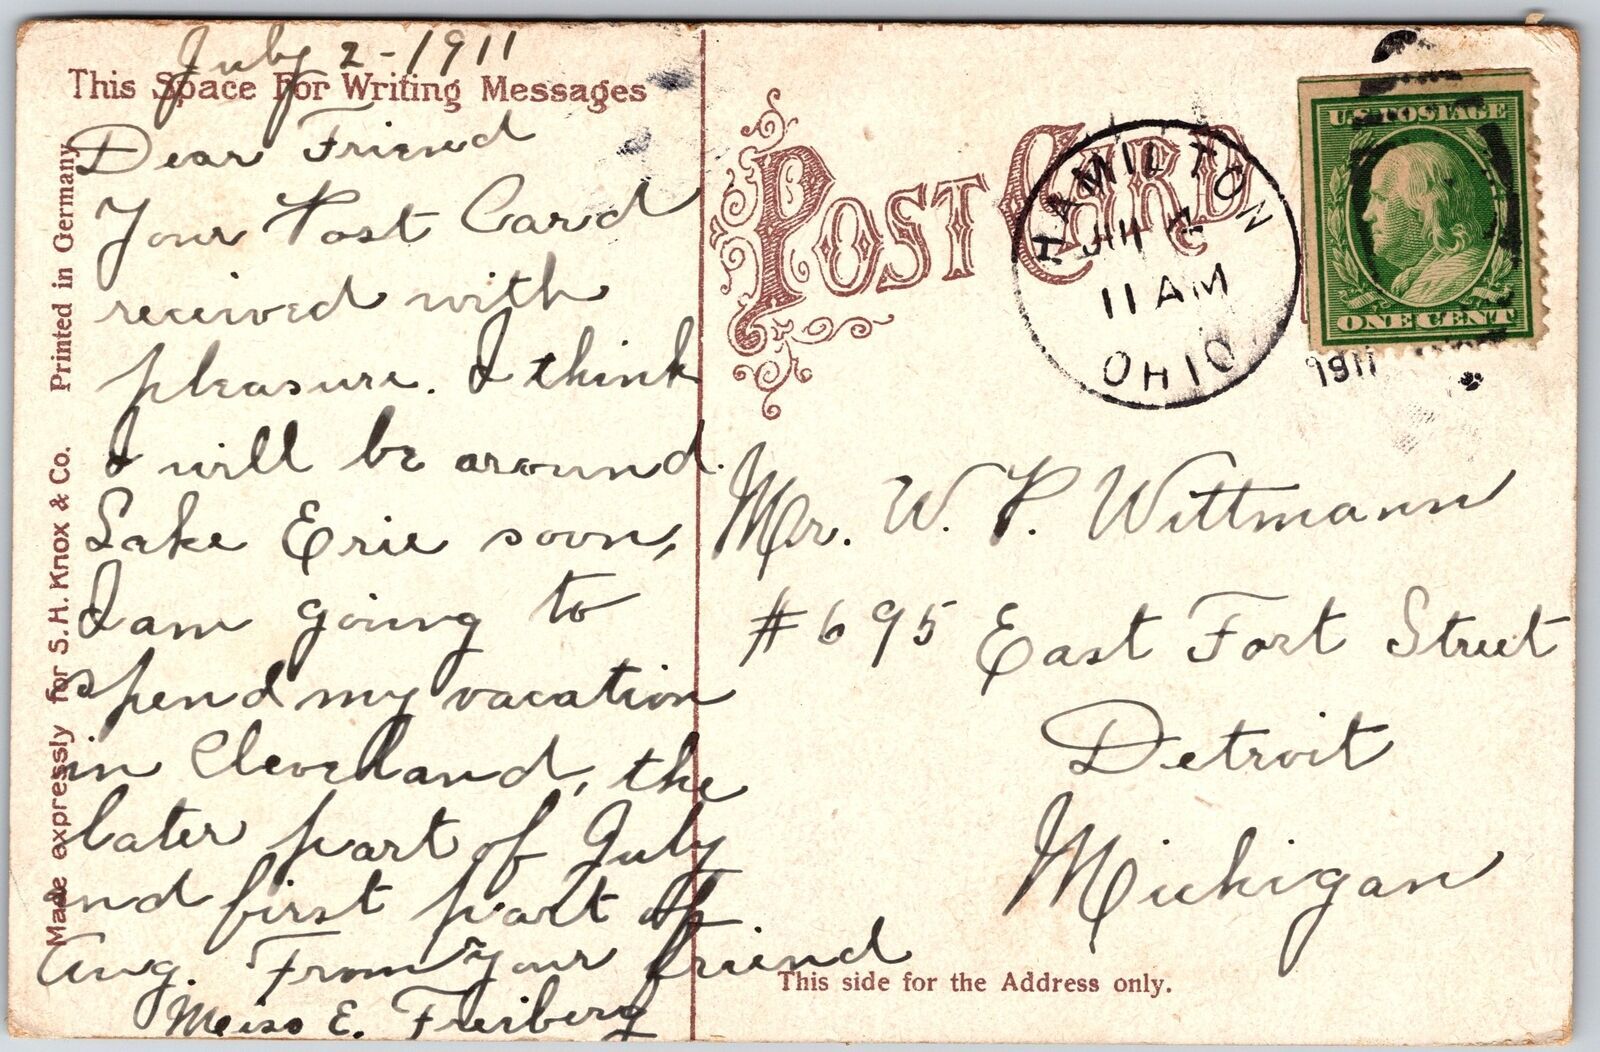 July 2-1911
This Space For Writing Messages
Dear Friend
Your Post Card
received with
pleasure. I think
I will be around
Lake Erie soon,
I am going to
spend my vacation
in Cleveland, the
later part of July
and first part of
Aug. From your friend
E. Freiberg
Made expressly for S.H. Knox & Co. Printed in Germany
POST CARD
HAMILTON
11 AM
OHIO
1911
U.S. POSTAGE
ONE CENT
Mr. W. P. Wittmann
#695 East Fort Street
Detroit
Michigan
This side for the Address only.